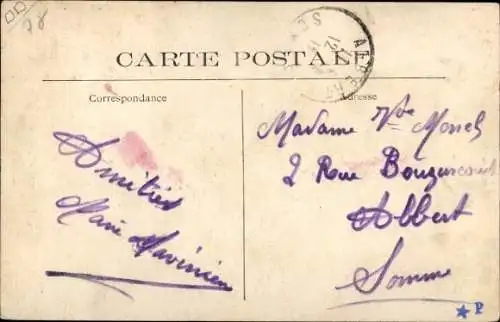 78
CARTE POSTALE
Correspondance
Adresse
Amitiés
Marie
Madame Vve Morel
2 Rue
Albert
Somme
P